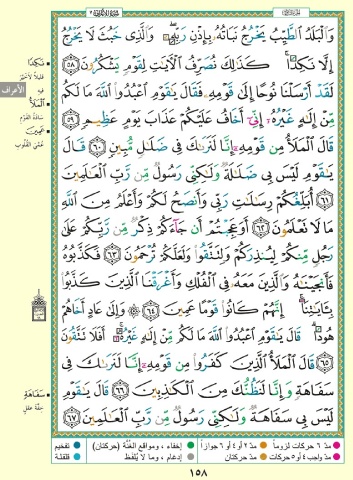 وَالْبَلَدُ الطَّيِّبُ يَخْرُجُ نَبَاتُهُ بِإِذْنِ رَبِّهِ وَالَّذِي خَبُثَ لَا يَخْرُجُ
إِلَّا نَكِدًا كَذَٰلِكَ نُصَرِّفُ الْآيَاتِ لِقَوْمٍ يَشْكُرُونَ ٥٨
لَقَدْ أَرْسَلْنَا نُوحًا إِلَىٰ قَوْمِهِ فَقَالَ يَا قَوْمِ اعْبُدُوا اللَّهَ مَا لَكُم
مِّنْ إِلَٰهٍ غَيْرُهُ إِنِّي أَخَافُ عَلَيْكُمْ عَذَابَ يَوْمٍ عَظِيمٍ ٥٩
قَالَ الْمَلَأُ مِن قَوْمِهِ إِنَّا لَنَرَاكَ فِي ضَلَالٍ مُّبِينٍ ٦٠ قَالَ
يَا قَوْمِ لَيْسَ بِي ضَلَالَةٌ وَلَٰكِنِّي رَسُولٌ مِّن رَّبِّ الْعَالَمِينَ
٦١ أُبَلِّغُكُمْ رِسَالَاتِ رَبِّي وَأَنصَحُ لَكُمْ وَأَعْلَمُ مِنَ اللَّهِ
مَا لَا تَعْلَمُونَ ٦٢ أَوَعَجِبْتُمْ أَن جَاءَكُمْ ذِكْرٌ مِّن رَّبِّكُمْ عَلَىٰ
رَجُلٍ مِّنكُمْ لِيُنذِرَكُمْ وَلِتَتَّقُوا وَلَعَلَّكُمْ تُرْحَمُونَ ٦٣ فَكَذَّبُوهُ
فَأَنجَيْنَاهُ وَالَّذِينَ مَعَهُ فِي الْفُلْكِ وَأَغْرَقْنَا الَّذِينَ كَذَّبُوا
بِآيَاتِنَا إِنَّهُمْ كَانُوا قَوْمًا عَمِينَ ٦٤ وَإِلَىٰ عَادٍ أَخَاهُمْ
هُودًا قَالَ يَا قَوْمِ اعْبُدُوا اللَّهَ مَا لَكُم مِّنْ إِلَٰهٍ غَيْرُهُ أَفَلَا تَتَّقُونَ
٦٥ قَالَ الْمَلَأُ الَّذِينَ كَفَرُوا مِن قَوْمِهِ إِنَّا لَنَرَاكَ فِي
سَفَاهَةٍ وَإِنَّا لَنَظُنُّكَ مِنَ الْكَاذِبِينَ ٦٦ قَالَ يَا قَوْمِ
لَيْسَ بِي سَفَاهَةٌ وَلَٰكِنِّي رَسُولٌ مِّن رَّبِّ الْعَالَمِينَ ٦٧
نَكِدًا
الأعراف
الْمَلَأُ
سَادَةُ الْقَوْمِ
عَمِينَ
عُمْيَ الْقُلُوبِ
سَفَاهَةٍ
خِفَّةِ عَقْلٍ
مدّ ٦ حركات لزوماً
مدّ ٢ أو ٤ أو ٦ جوازاً
إخفاء، ومواقع الغُنَّة (حركتان)
تفخيم
مدّ واجب ٤ أو ٥ حركات
مدّ حركتان
إدغام، وما لا يُلفظ
قلقلة
١٥٨